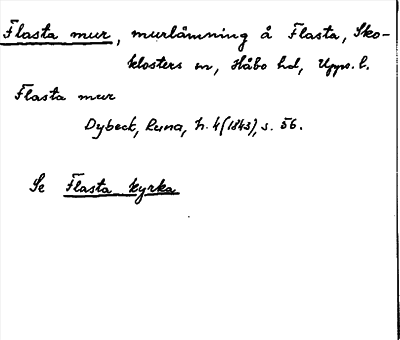 Flasta mur, murlämning å Flasta, Sko-
klosters sn, Håbo hd, Upps. l.
Flasta mur
Dybeck, Runa, h. 4 (1843), s. 56.
Se Flasta kyrka